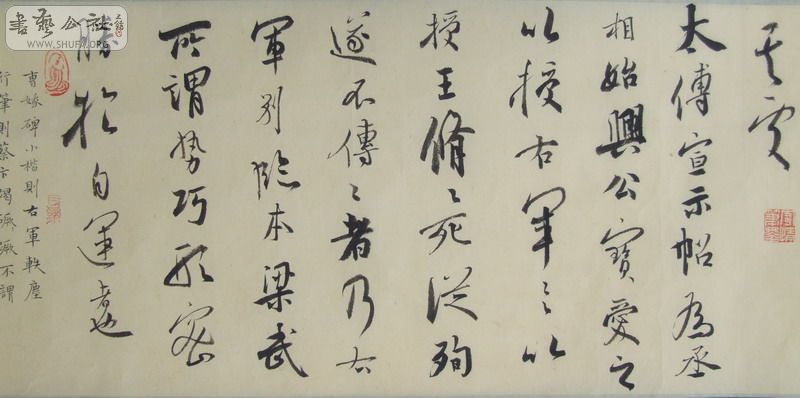 太傅宣示帖為丞
相始興公寶愛之
以授右軍〻以
授王脩〻死從殉
遂不傳〻者乃右
軍別臨本梁武
所謂勢巧形密
勝於自運者也
曹娥碑小楷則右軍軼塵
行筆則蔡
不謂
書藝公社